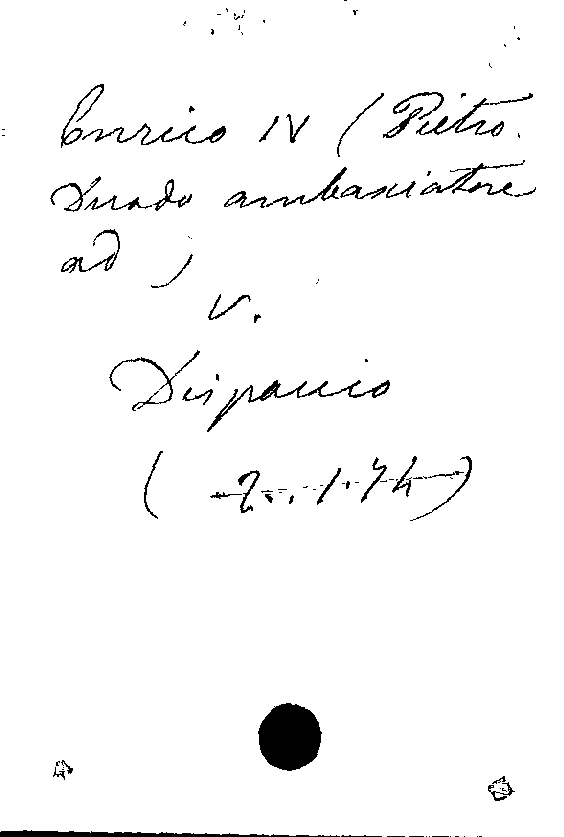 Enrico IV (Pietro
Duodo ambasciatore
ad )
V.
Dispaccio
( 2. . 1. 74 )